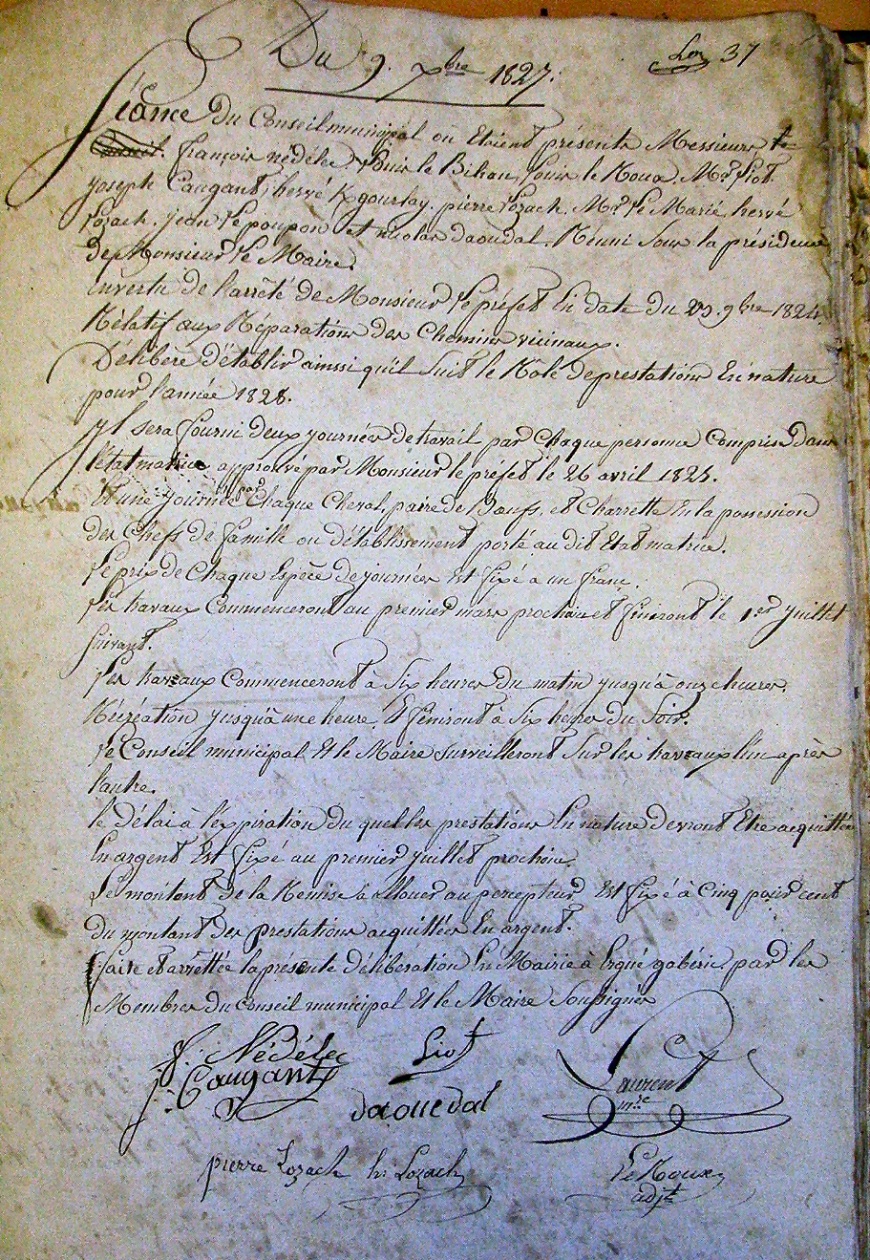 Du 9. 7bre 1827.
37
Séance du Conseil municipal où Etoient présents Messieurs
françois nédélec, Louis le Bihan, Louis le Roux, Mr. Liot.
joseph Caugant, hervé Kgourlay. pierre Lozach. Mr. Le Marié, hervé
Lozach. Jean Le poupon et nicolas daoudal, Réuni Sous la présidence
de Monsieur Le Maire.
Envertu de l'arrêté de Monsieur Le préfet En date du 29. 9bre 1824.
Rélatif aux Réparations des Chemins vicinaux.
Délibère d'établir ainssi qu'il Suit le Rôle de prestations En nature
pour l'année 1828.
Il sera fourni deux journées de travail par Chaque personne Comprise dans
l'état matrice approuvé par Monsieur le préfet le 26 avril 1825.
Et une journée par Chaque Cheval, paire de Bœufs, et Charrette En la possession
des Chefs de famille ou d'établissement porté au dit Etat matrice.
Le prix de Chaque Espèce de journées Est fixé a un franc.
Les travaux Commenceront au premier mars prochain et finiront le 1er juillet
Suivant.
Les travaux Commenceront à Six heures du matin jusqu'à onze heures.
Récréation jusqu'à une heure. Et finiront à Six heures du Soir.
Le Conseil municipal Et le Maire Surveilleront Sur les travaux l'un après
l'autre.
le délai à l'expiration du quel les prestations En nature devront Etre acquittées
En argent Est fixé au premier juillet prochain.
Le montant de la Remise à allouer au percepteur Est fixé à Cinq pour cent
du montant des prestations acquittées En argent.
faite et arrettée la présente délibération En Mairie à Ergué gabéric par les
Membres du Conseil municipal Et le Maire Soussignés
f. Nédélec
Liot
Laurent
mre
j. Caugant
daouedal
pierre Lozach
hv Lozach
Le Roux
adjt